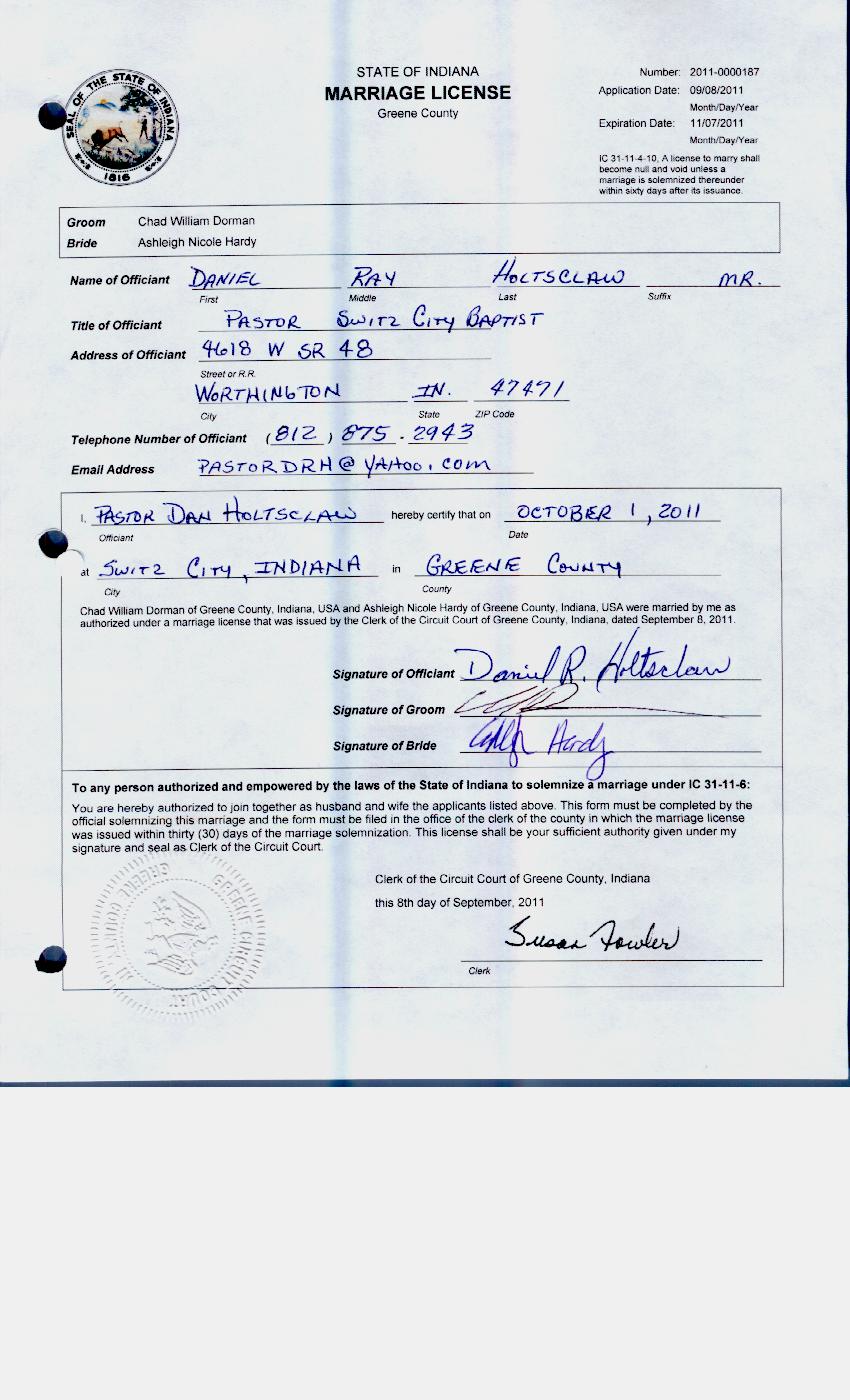 SEAL OF THE STATE OF INDIANA
1816
STATE OF INDIANA
MARRIAGE LICENSE
Greene County
Number: 2011-0000187
Application Date: 09/08/2011
Month/Day/Year
Expiration Date: 11/07/2011
Month/Day/Year
IC 31-11-4-10, A license to marry shall
become null and void unless a
marriage is solemnized thereunder
within sixty days after its issuance.
Groom Chad William Dorman
Bride Ashleigh Nicole Hardy
Name of Officiant DANIEL RAY HOLTSCLAW MR.
First Middle Last Suffix
Title of Officiant PASTOR SWITZ CITY BAPTIST
Address of Officiant 4618 W SR 48
Street or R.R.
WORTHINGTON IN. 47471
City State ZIP Code
Telephone Number of Officiant (812) 875-2943
Email Address PASTORDRH@YAHOO.COM
I, PASTOR DAN HOLTSCLAW hereby certify that on OCTOBER 1, 2011
Officiant Date
at SWITZ CITY, INDIANA in GREENE COUNTY
City County
Chad William Dorman of Greene County, Indiana, USA and Ashleigh Nicole Hardy of Greene County, Indiana, USA were married by me as
authorized under a marriage license that was issued by the Clerk of the Circuit Court of Greene County, Indiana, dated September 8, 2011.
Signature of Officiant Daniel R. Holtsclaw
Signature of Groom
Signature of Bride Hardy
To any person authorized and empowered by the laws of the State of Indiana to solemnize a marriage under IC 31-11-6:
You are hereby authorized to join together as husband and wife the applicants listed above. This form must be completed by the
official solemnizing this marriage and the form must be filed in the office of the clerk of the county in which the marriage license
was issued within thirty (30) days of the marriage solemnization. This license shall be your sufficient authority given under my
signature and seal as Clerk of the Circuit Court.
GREENE CIRCUIT COURT
GREENE COUNTY
Clerk of the Circuit Court of Greene County, Indiana
this 8th day of September, 2011
Susan Fowler
Clerk